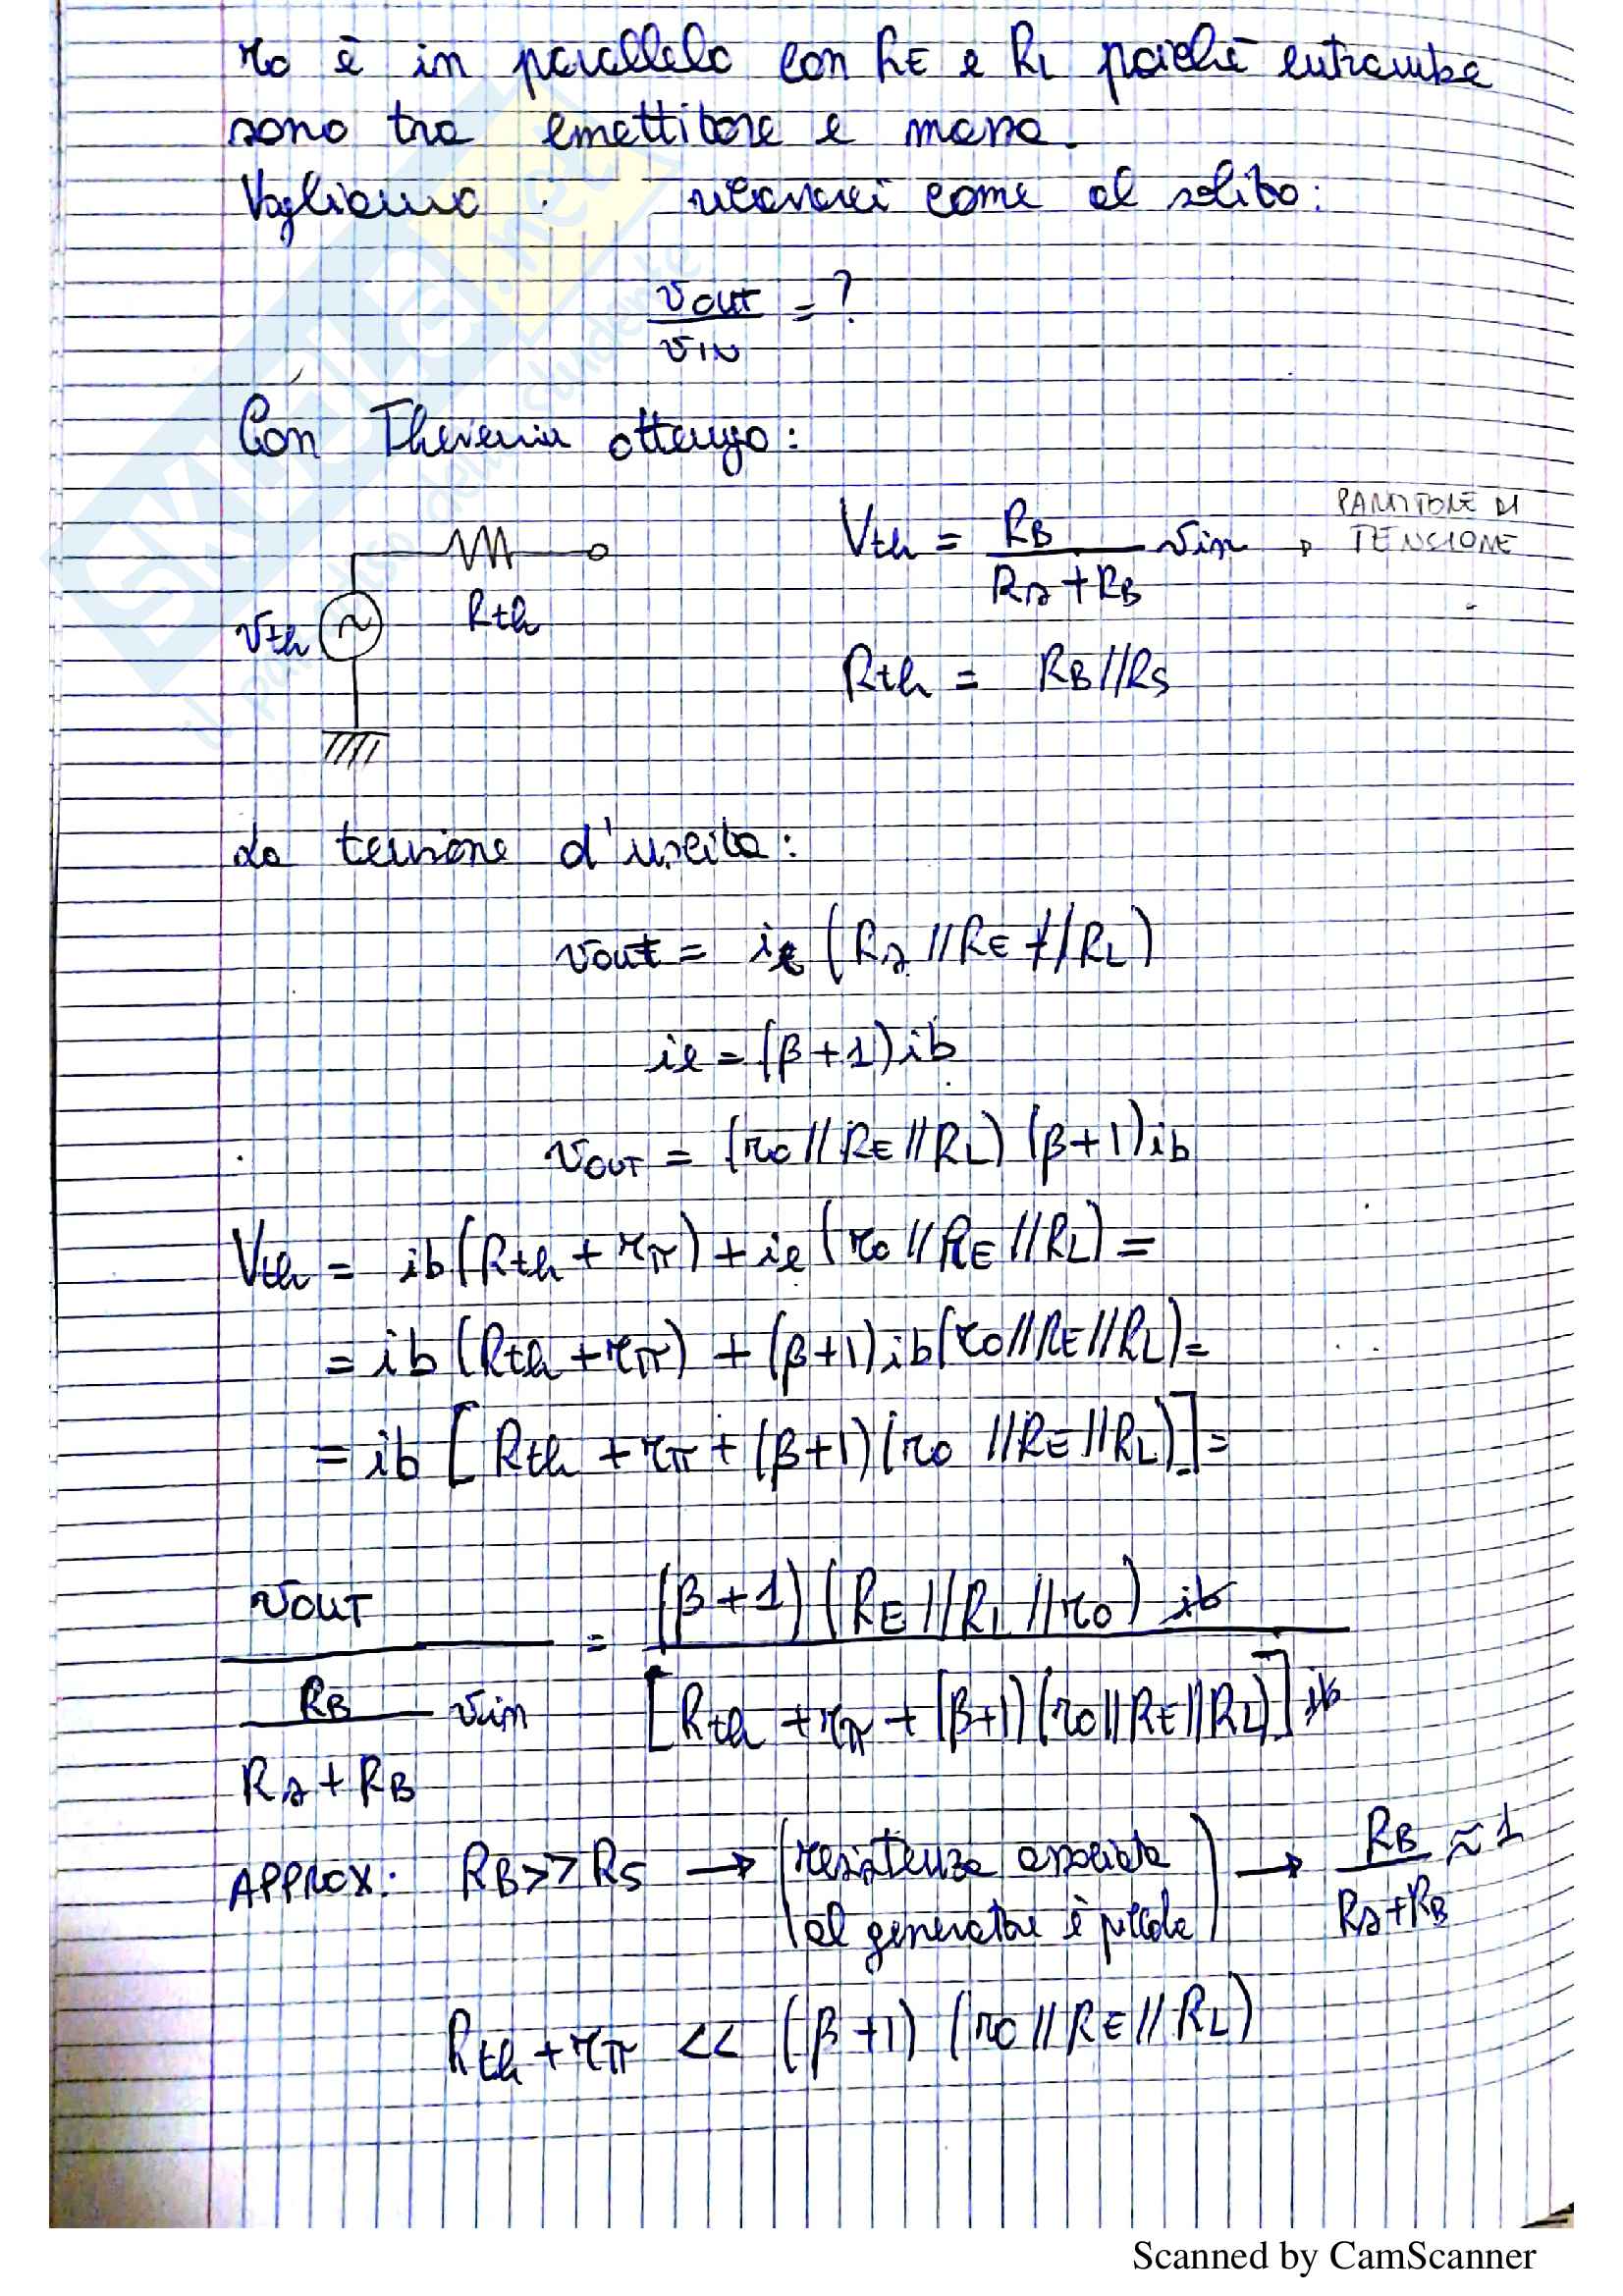 ro è in parallelo con RE e RL poichè entrambe
sono tra emettitore e massa.
Vogliamo ricavarci come al solito:
vout/vIN = ?
Con Thevenin ottengo:
Vth = RB/(Rs+RB) vin → PARTITORE DI TENSIONE
vth Rth
Rth = RB//RS
La tensione d'uscita:
vout = ie (Rs//RE//RL)
ie = (β+1)ib
vOUT = (ro//RE//RL) (β+1)ib
Vth = ib(Rth + rπ) + ie(ro//RE//RL) =
= ib (Rth + rπ) + (β+1)ib(ro//RE//RL) =
= ib [Rth + rπ + (β+1)(ro //RE//RL)] =
vOUT / (RB/(Rs+RB) vin) = (β+1)(RE//RL//ro) ib / [Rth + rπ + (β+1)(ro//RE//RL)] ib
APPROX: RB>>RS → (resistenza associata al generatore è piccola) → RB/(Rs+RB) ≈ 1
Rth + rπ << (β+1) (ro//RE//RL)
SKUOLA.net
il paradiso dello studente
Scanned by CamScanner